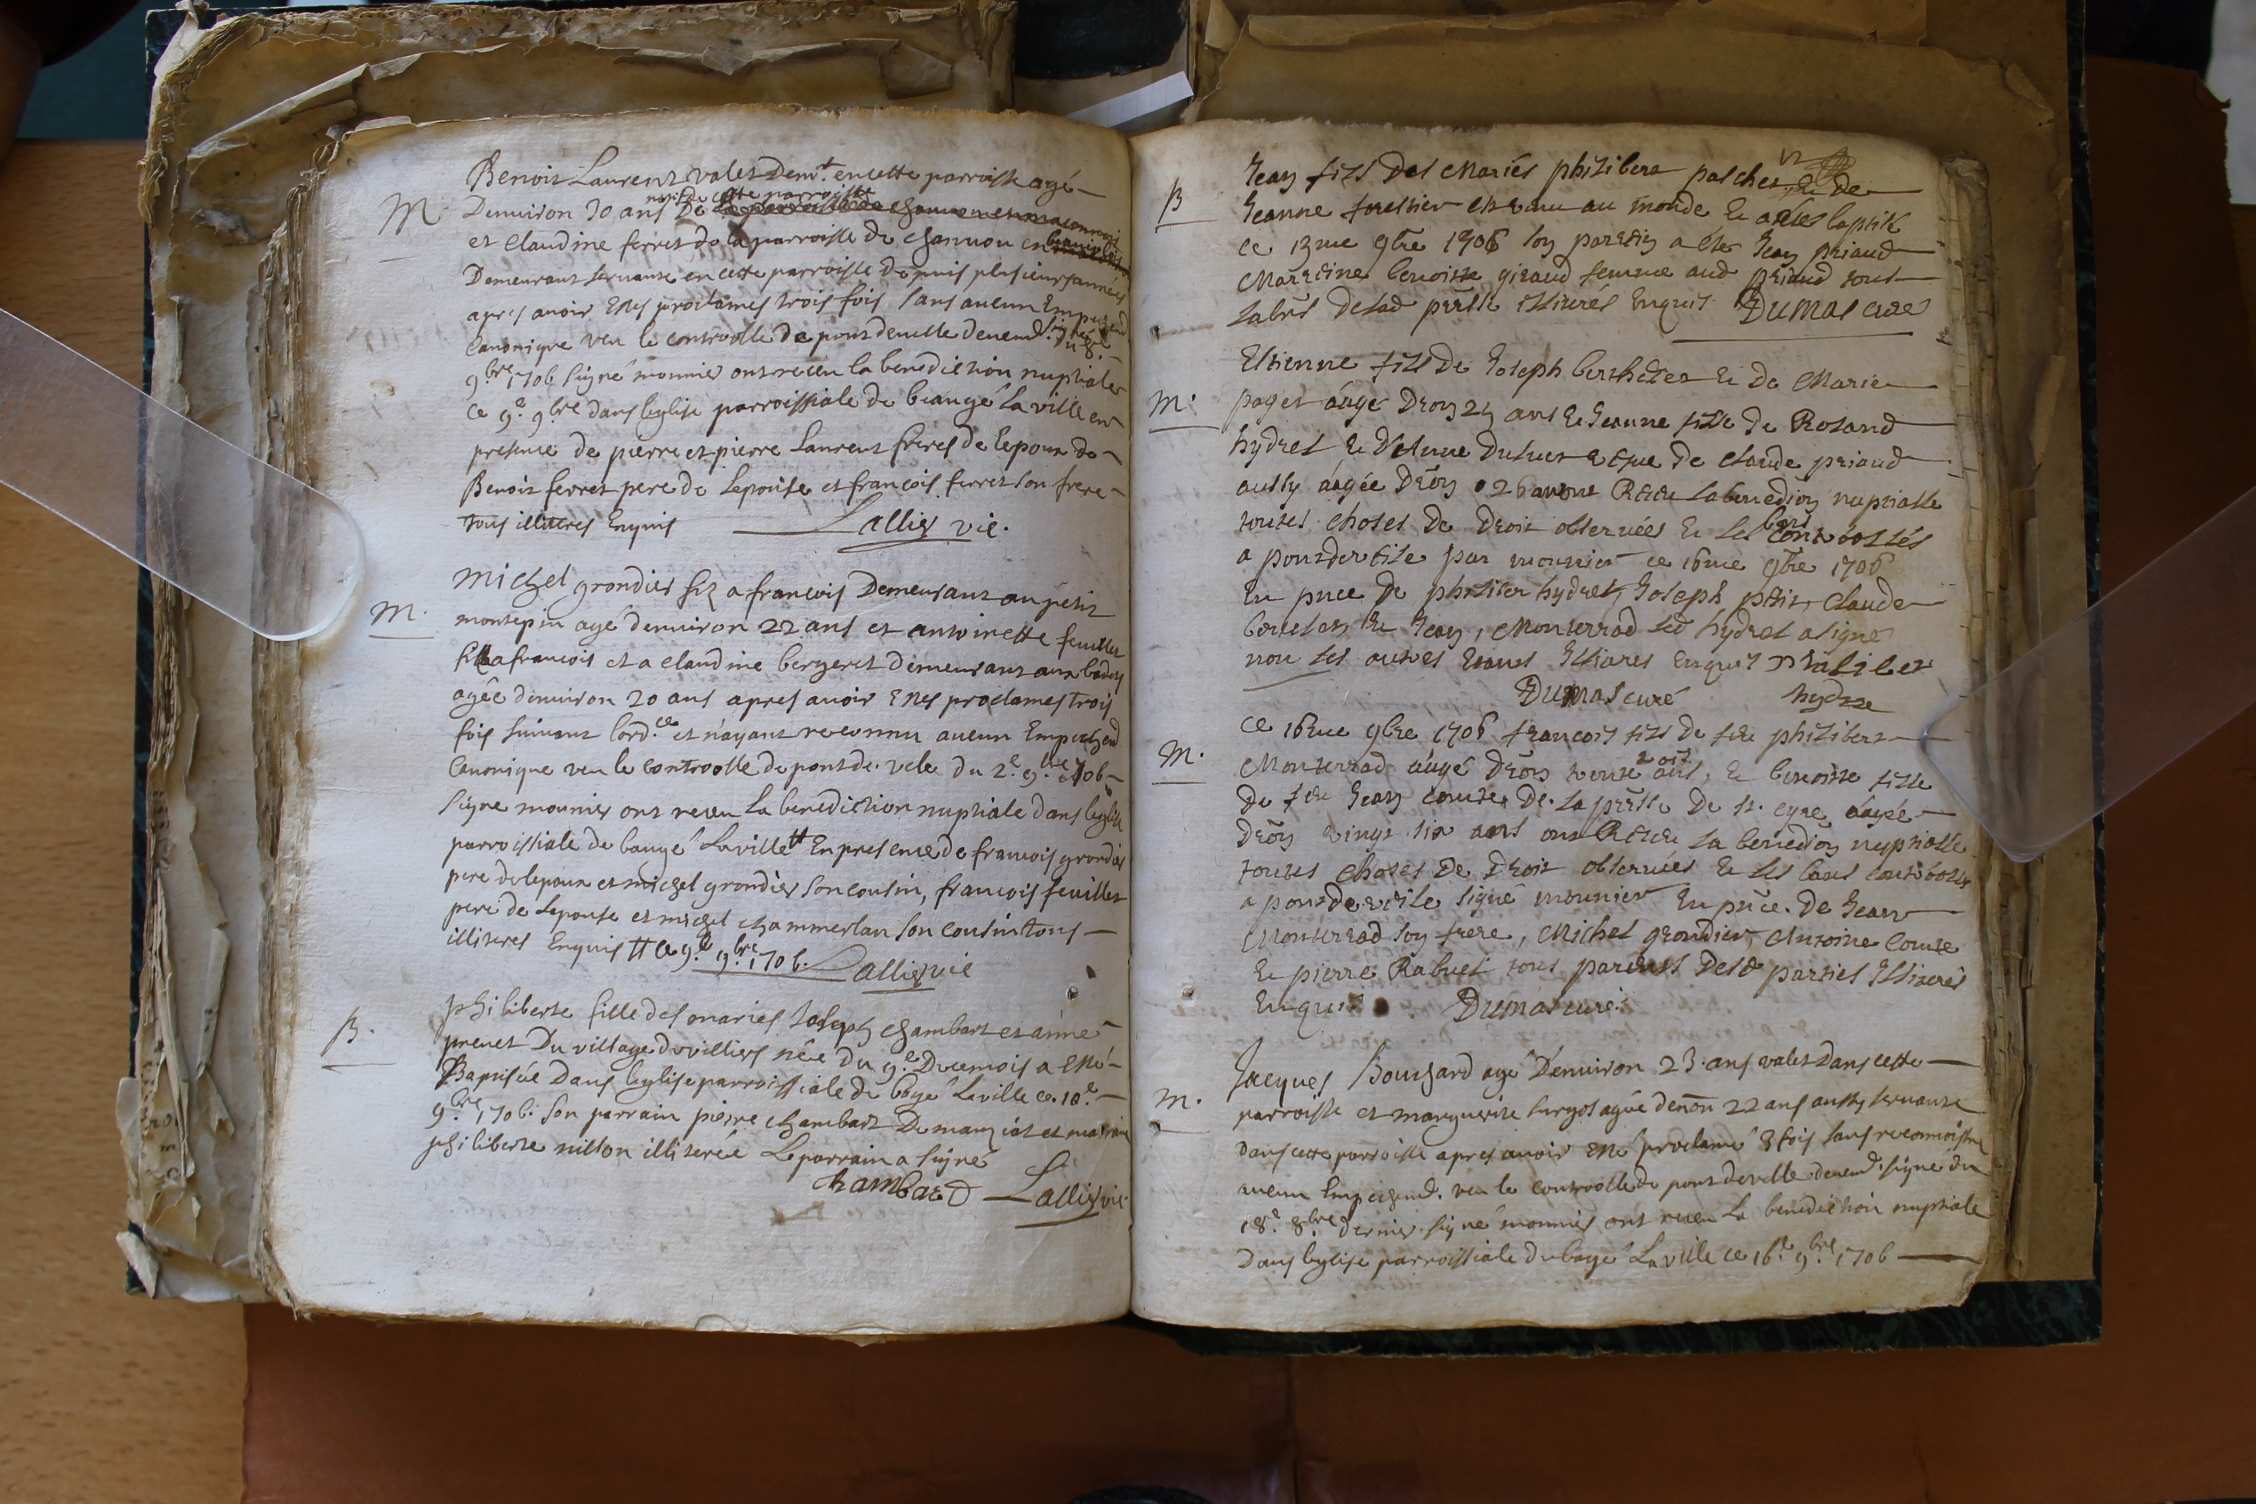 M. Benoit Laurent valet dem.t en cette parroisse agé
natif de cette parroisse
Denviron 30 ans De la parroisse de
et Claudine ferret de la parroisse de channou en
Demeurant servante en cette parroisse depuis plusieurs années
apres avoir estes proclames trois fois sans aucun Empechemd
Canonique veu le controolle de pontdevelle devemd. signé du 8.e
9.bre 1706 signé mounier ont receu la benediction nuptiale
ce 9.e 9.bre dans leglise parroissiale de beaugé la ville en
presence de pierre et pierre Laurent freres de lepoux de
Benoit ferret pere de lepouse et francois ferret son frere
tous illiteres Enquis Lallier vic.
M. Michel grondier fiz a francois Demeurant au petit
montepin agé denviron 22 ans et antoinette feuillet
filla francois et a claudine bergeret demeurant aux
agée denviron 20 ans apres avoir Estes proclames trois
fois suivant lord.ce et nayant reconnu aucun Empechemd
Canonique veu le controolle de pont de vele du 2.e 9.bre 1706
signe mounier ont receu la benediction nuptiale dans leglise
parroissiale de baugé Laville tt En presence de francois grondier
pere de lepoux et michel grondier son cousin, francois feuillet
pere de lepouse et michel chammerlan son cousin tous
illiteres Enquis tt ce 9.e 9.bre 1706. Lallier vic
B. philiberte fille des maries Joseph chambart et anne
prevet Du village de villiers née du 9.e Du ce mois a esté
Baptisée Dans leglise parroissiale de bagé Laville ce 10.e
9.bre 1706. Son parrain pierre chambart De manziat et marraine
philiberte nitton illiterée Le parrain a signé
chambard Lallier vic
B Jean fils des Mariés philibert paschet et de
Jeanne forestier est venu au monde et a estes baptisé
ce 13me 9bre 1706 son parrein a ete Jean priaud
Marreine benoiste giraud femme aud priaud tout
labrs delad press illiterés Enquis Dumas curé
M. Estienne fils de Joseph berthelet et de Marie
paget áagé Dron 25 ans et Jeanne fille de Roland
hydret et detiene Dutuer veue de claude priaud
aussy áagée Dron 26 ans ont Receu la benedion nuptialle
toutes choses de Droit observées et les bans controollés
a pontdevesle par mounier ce 16me 9bre 1706
En pnce de philiber hydret, Joseph petit, claude
et Jean, Monterrad led hydret a signé
non les autres Estans Illiterés Enquis Philiber
Dumas curé hydre
M. ce 16me 9bre 1706 francois fils de feu philibert
Monterrad áagé Dron trente ans, et benoiste fille
de feu Jean comte, De la presse De st. cyre áagée
Dron vingt six ans ont Receu la benedion nuptialle
toutes choses de Droit observées et les bans controolés
a pontdevesle signé mounier En pnce. De Jean
Monterrad son frere, Michel grondier, Antoine Comte
et pierre Rabuel tous parents desd parties Illiterés
Enquis Dumas curé
M. Jacques Bourgard agé Denviron 23 ans valet dans cette
parroisse et marguerite surgot agée denon 22 ans aussy servante
dans cette parroisse apres avoir esté proclamé 3 fois sans reconnoistre
aucun Empechemd. veu le controolle de pont de velle devemd. signé du
18.e 8.bre dernier signé mounier ont receu la benediction nuptiale
Dans leglise parroissiale de bagé Laville ce 16.e 9.bre 1706